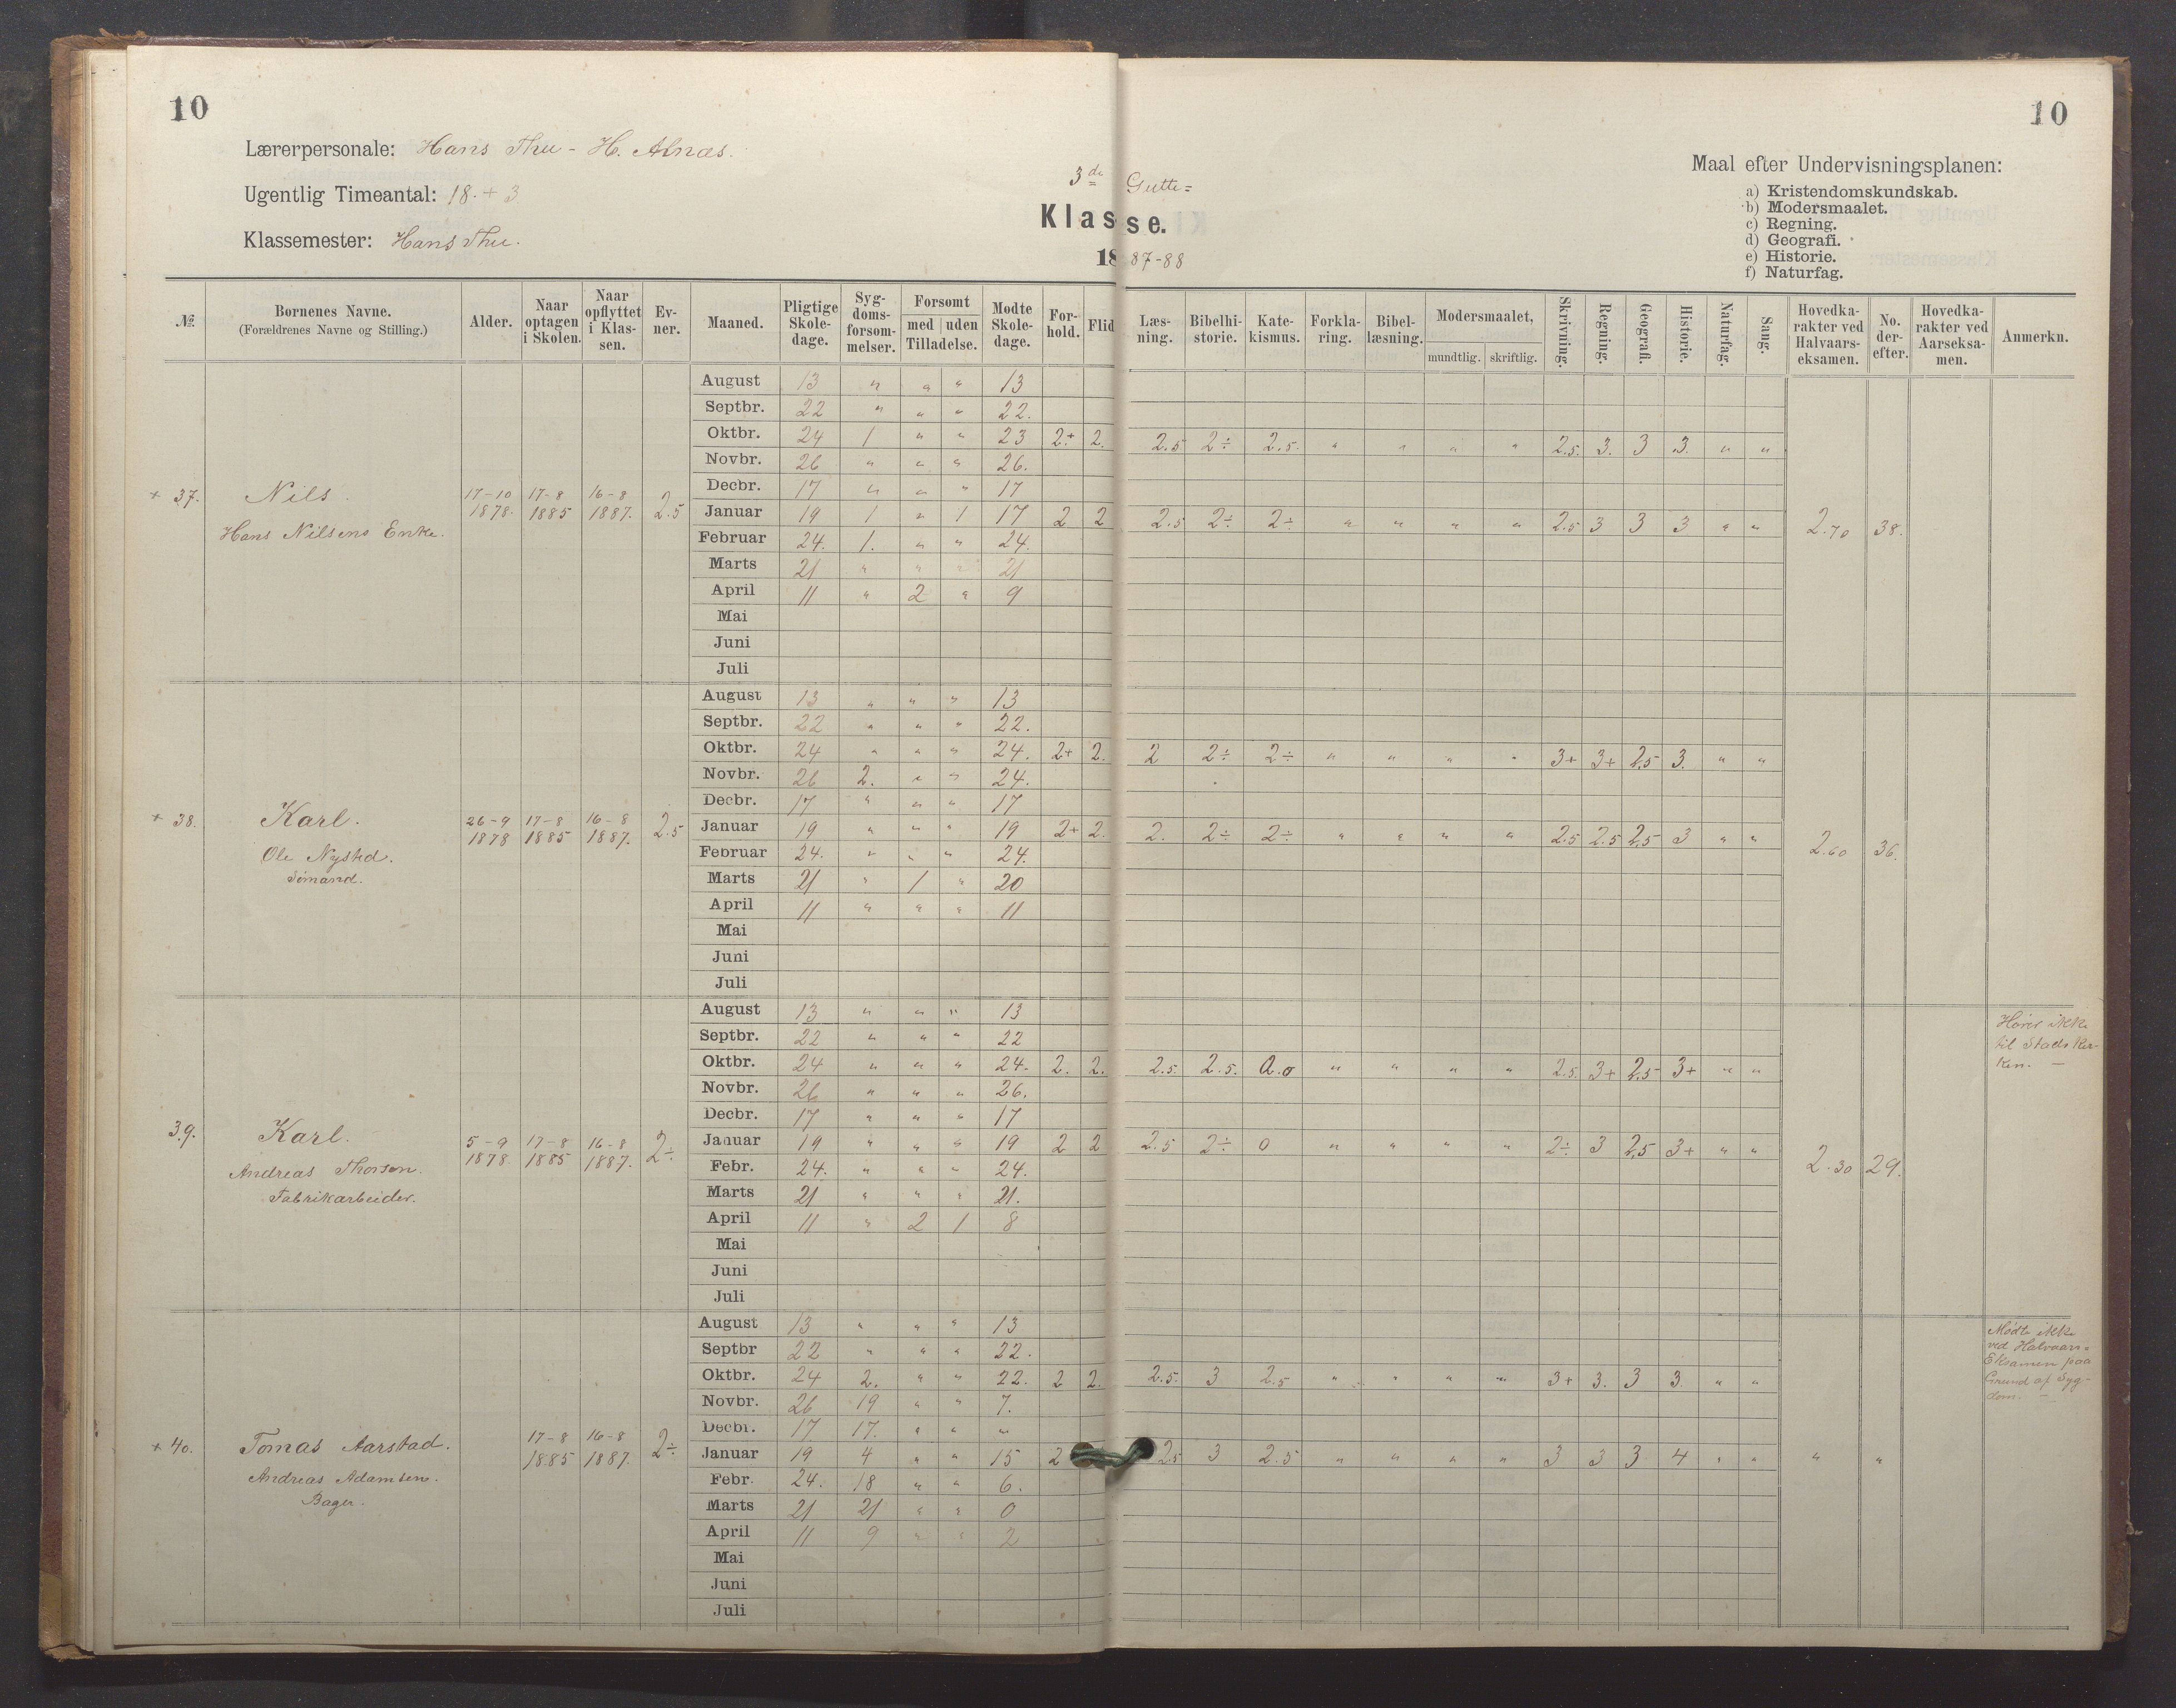 10
10
Lærerpersonale: Hans Thu - H. Alnæs.
Ugentlig Timeantal: 18. + 3
Klassemester: Hans Thu.
3de Gutte=
Klasse.
1887-88
Maal efter Undervisningsplanen:
a) Kristendomskundskab.
b) Modersmaalet.
c) Regning.
d) Geografi.
e) Historie.
f) Naturfag.
№ | Børnenes Navne. (Forældrenes Navne og Stilling.) | Alder. | Naar optagen i Skolen. | Naar opflyttet i Klassen. | Evner. | Maaned. | Pligtige Skoledage. | Sygdomsforsømmelser. | Forsømt med uden Tilladelse. | Mødte Skoledage. | Forhold. | Flid | Læsning. | Bibelhistorie. | Katekismus. | Forklaring. | Bibellæsning. | Modersmaalet, mundtlig. skriftlig. | Skrivning. | Regning. | Geografi. | Historie. | Naturfag. | Sang. | Hovedkarakter ved Halvaarseksamen. | No. derefter. | Hovedkarakter ved Aarseksamen. | Anmerkn.
+ 37. Nils.
Hans Nilsens Enke.
17-10 1878. | 17-8 1885 | 16-8 1887. | 2.5
August 13 " " " 13
Septbr. 22 " " " 22.
Oktbr. 24 1 " " 23 2+ 2. 2.5 2÷ 2.5. " " " " 2.5. 3. 3 3. " "
Novbr. 26 " " " 26.
Decbr. 17 " " " 17
Januar 19 1 " 1 17 2 2 2.5 2÷ 2÷ " " " " 2.5 3 3 3 " " 2.70 38.
Februar 24. 1. " " 24.
Marts 21 " " " 21
April 11 " 2 " 9
Mai
Juni
Juli
+ 38. Karl.
Ole Nysted.
Sömand.
26-9 1878 | 17-8 1885 | 16-8 1887. | 2.5
August 13 " " " 13
Septbr. 22 " " " 22.
Oktbr. 24 " " " 24. 2+ 2. 2 2÷ 2÷ " " " " 3+ 3+ 2.5 3. " "
Novbr. 26 2. " " 24.
Decbr. 17 " " " 17
Januar 19 " " " 19 2+ 2. 2. 2÷ 2÷ " " " " 2.5 2.5 2.5 3 " " 2.60 36.
Februar 24. " " " 24.
Marts 21 " 1 " 20
April 11 " " " 11
Mai
Juni
Juli
39. Karl.
Andreas Thorsen.
Fabrikarbeider.
5-9 1878. | 17-8 1885 | 16-8 1887. | 2÷
August 13 " " " 13
Septbr. 22 " " " 22
Oktbr. 24 " " " 24. 2. 2. 2.5. 2.5. " " " " 2.5. 3+ 2.5 3+ " "
Novbr. 26 " " " 26.
Decbr. 17 " " " 17
Januar 19 " " " 19 2 2 2.5 2÷ 0 " " " " 2÷ 3 2.5 3+ " " 2.30 29.
Febr. 24. " " " 24.
Marts 21 " " " 21.
April 11 " 2 1 8
Mai
Juni
Juli
Hører ikke
til Stadskir-
ken. —
+ 40. Tomas Aarstad.
Andreas Adamsen.
Bager.
17-8 1885 | 16-8 1887. | 2÷
August 13 " " " 13
Septbr 22 " " " 22.
Oktbr. 24 2. " " 22. 2 2. 2.5. 3 2.5 " " " " 3+ 3. 3 3. " "
Novbr. 26 19 " " 7.
Decbr. 17 17. " " "
Januar 19 4 " " 15 2 2.5 3 2.5 " " " " 3 3 3 4 " " " "
Febr. 24. 18 " " 6.
Marts 21 21 " " 0
April 11 9 " " 2
Mai
Juni
Juli
Mødte ikke
ved Halvaars-
Eksamen paa
Grund af Syg-
dom. —